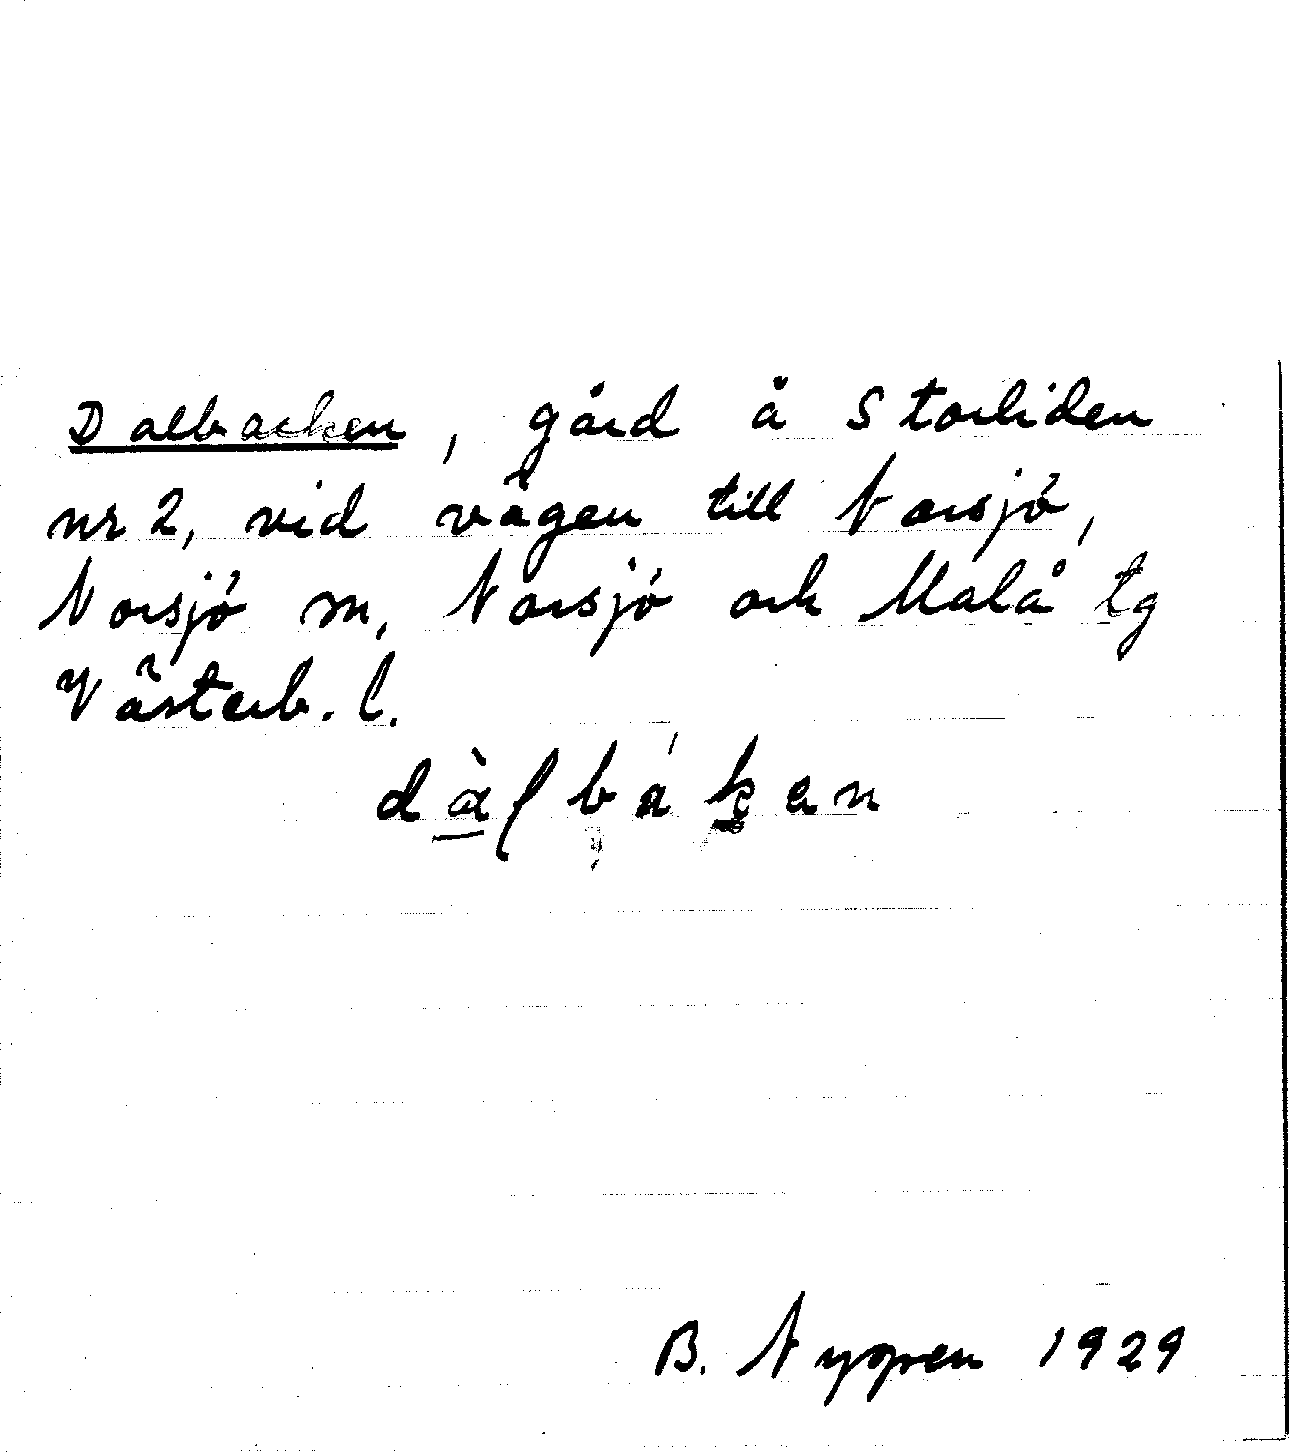 Dalbacken, gård å Storliden
nr 2, vid vägen till Norsjö,
Norsjö sn, Norsjö och Malå tg
Västerb. l.
dàlbákan
B. Nygren 1929